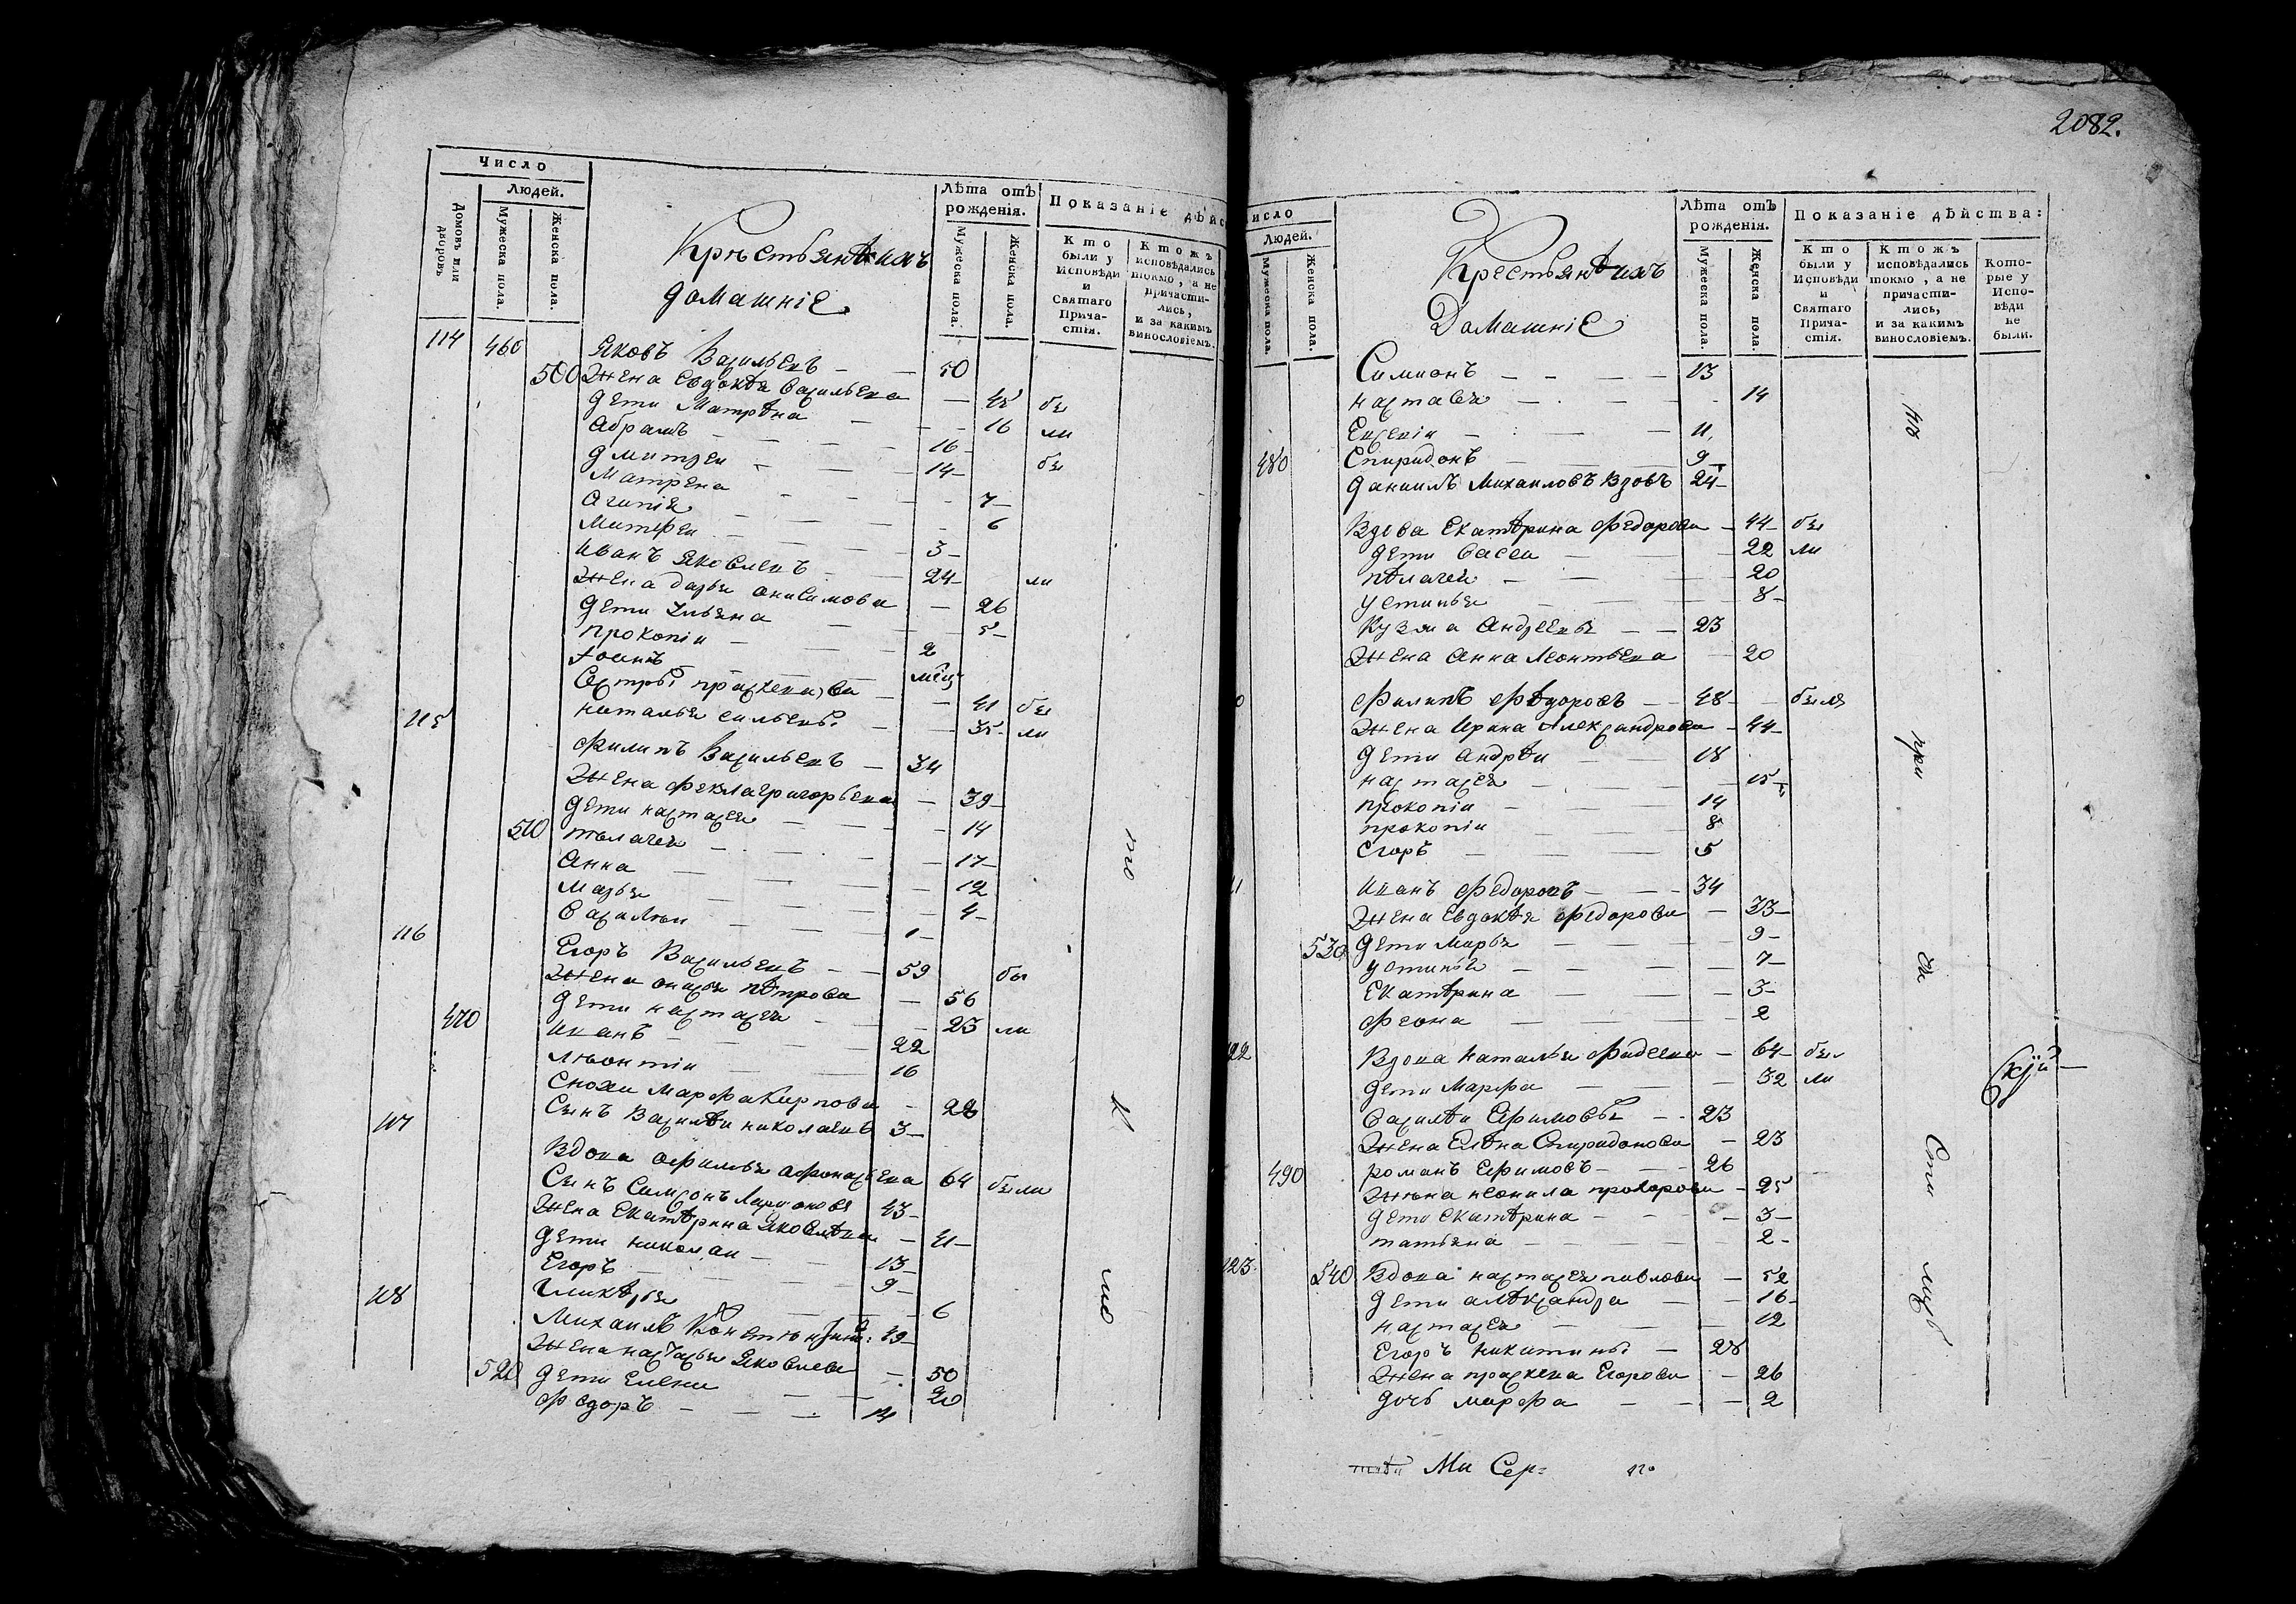 Число
Людей.
Домовъ или дворовъ
Мужеска пола.
Женска пола.
Крестьянѣ ихъ
домашніе
Лѣта отъ рожденія.
Мужеска пола.
Женска пола.
Показаніе дѣйс
Кто были у Исповѣди и Святаго Причастія.
Ктожъ исповѣдались токмо, а не причастились, и за какимъ винословіемъ.
114 460 Яковъ Васильевъ 50
500 Жена Евдокѣя Васильева 42 бы
дети Матрѣна 16 ли
Абрамъ 16
дмитреи 14 бы
Матрена 7
Агипія 6
Митреи 3
Иванъ Яковлевъ 24 ли
Жена дарья онисимова 26
дети Ульяна 5
прокопіи 2
Сестры прасковья 41 бы
наталья силъевы 35 ли
115 Филипъ Васильевъ 34
Жена Фекла григорьева 39
дети настасея 14
510 пелагея 17
Анна 12
Марья 4
Василеи 1
116 Егоръ Васильевъ 59 бы
Жена петрова 56
дети настасея 23 ли
470 Иванъ 22
леонтіи 16
Сноха Марфа Карпова 28
Сынъ Василѣи николаевъ 3
117 Вдова Афимья афонасьева 64 были
Сынъ Ларионовъ 43
Жена Екатѣрина Яковлѣва 41
дети николаи 13
Егоръ 9
Гликѣрья 6
118 Михаилъ 49
Жена настасья Яковлева 50
520 дети Елена 20
Федоръ 14
2082.
исло
Людей.
Мужеска пола.
Женска пола.
Крестьянѣ ихъ
Домашніе
Лѣта отъ рожденія.
Мужеска пола.
Женска пола.
Показаніе дѣйства:
Кто были у Исповѣди и Святаго Причастія.
Ктожъ исповѣдались токмо, а не причастились, и за какимъ винословіемъ.
Которые у Исповѣди не были.
Симионъ 13
настасея 14
Евгеніи 11
480 Спиридонъ 9
даниилъ Михаиловъ Вдовъ 24
Вдова Екатѣрина Федорова 44 бы
дети Васса 22 ли
пѣлагея 20
устинья 8
Кузма Андреевъ 23
Жена Анна Леонтьева 20
Филипъ Фѣдоровъ 48 были
Жена Ирина Александрова 44
дети Андрѣи 18
настасея 15
прокопіи 14
прокопіи 8
Егоръ 5
Иванъ Федоровъ 34
Жена Евдокѣя Федорова 33
530 дети Марья 9
устинья 7
Екатѣрина 3
Феона 2
122 Вдова Наталья Фадеева 64 бы
дети Марфа 32 ли
Василѣи Ефимовъ 23
Жена Елѣна Спиридонова 23
490 романъ Ефимовъ 26
Жена неонила прохорова 25
дети Екатѣрина 3
татьяна 2
123 540 Вдова настасея павлова 52
дети алѣксандра 16
настасея 12
Егоръ никитинъ 28
Жена прасковя Егорова 26
дочь марфа 2
Ми Сер=